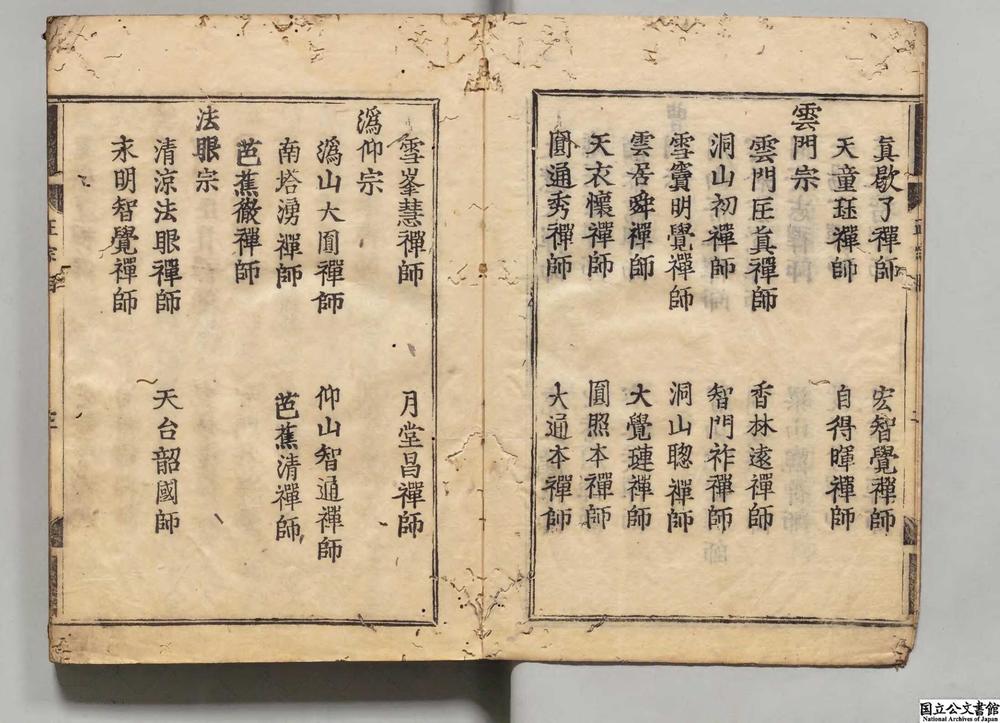 真歇了禪師 宏智覺禪師
天童珏禪師 自得暉禪師
雲門宗
雲門匡眞禪師 香林遠禪師
洞山初禪師 智門祚禪師
雪竇明覺禪師 洞山聰禪師
雲居舜禪師 大覺璉禪師
天衣懷禪師 圓照本禪師
圓通秀禪師 大通本禪師
雪峯慧禪師 月堂昌禪師
潙仰宗
潙山大圓禪師 仰山智通禪師
南塔湧禪師 芭蕉清禪師
芭蕉徹禪師
法眼宗
清涼法眼禪師 天台韶國師
永明智覺禪師
国立公文書館
National Archives of Japan